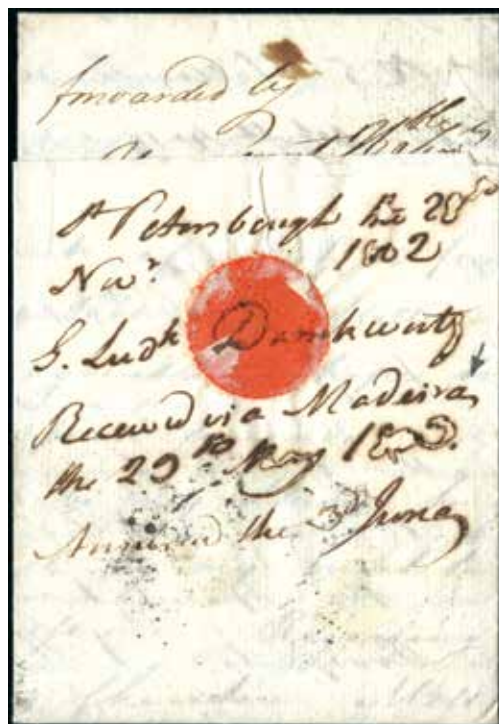 forwarded by
St Petersbourgh the 28
Novr. 1802
G. Ludh Damkwertz
Received via Madeira
the 29th May 1803.
Answered the 3d June